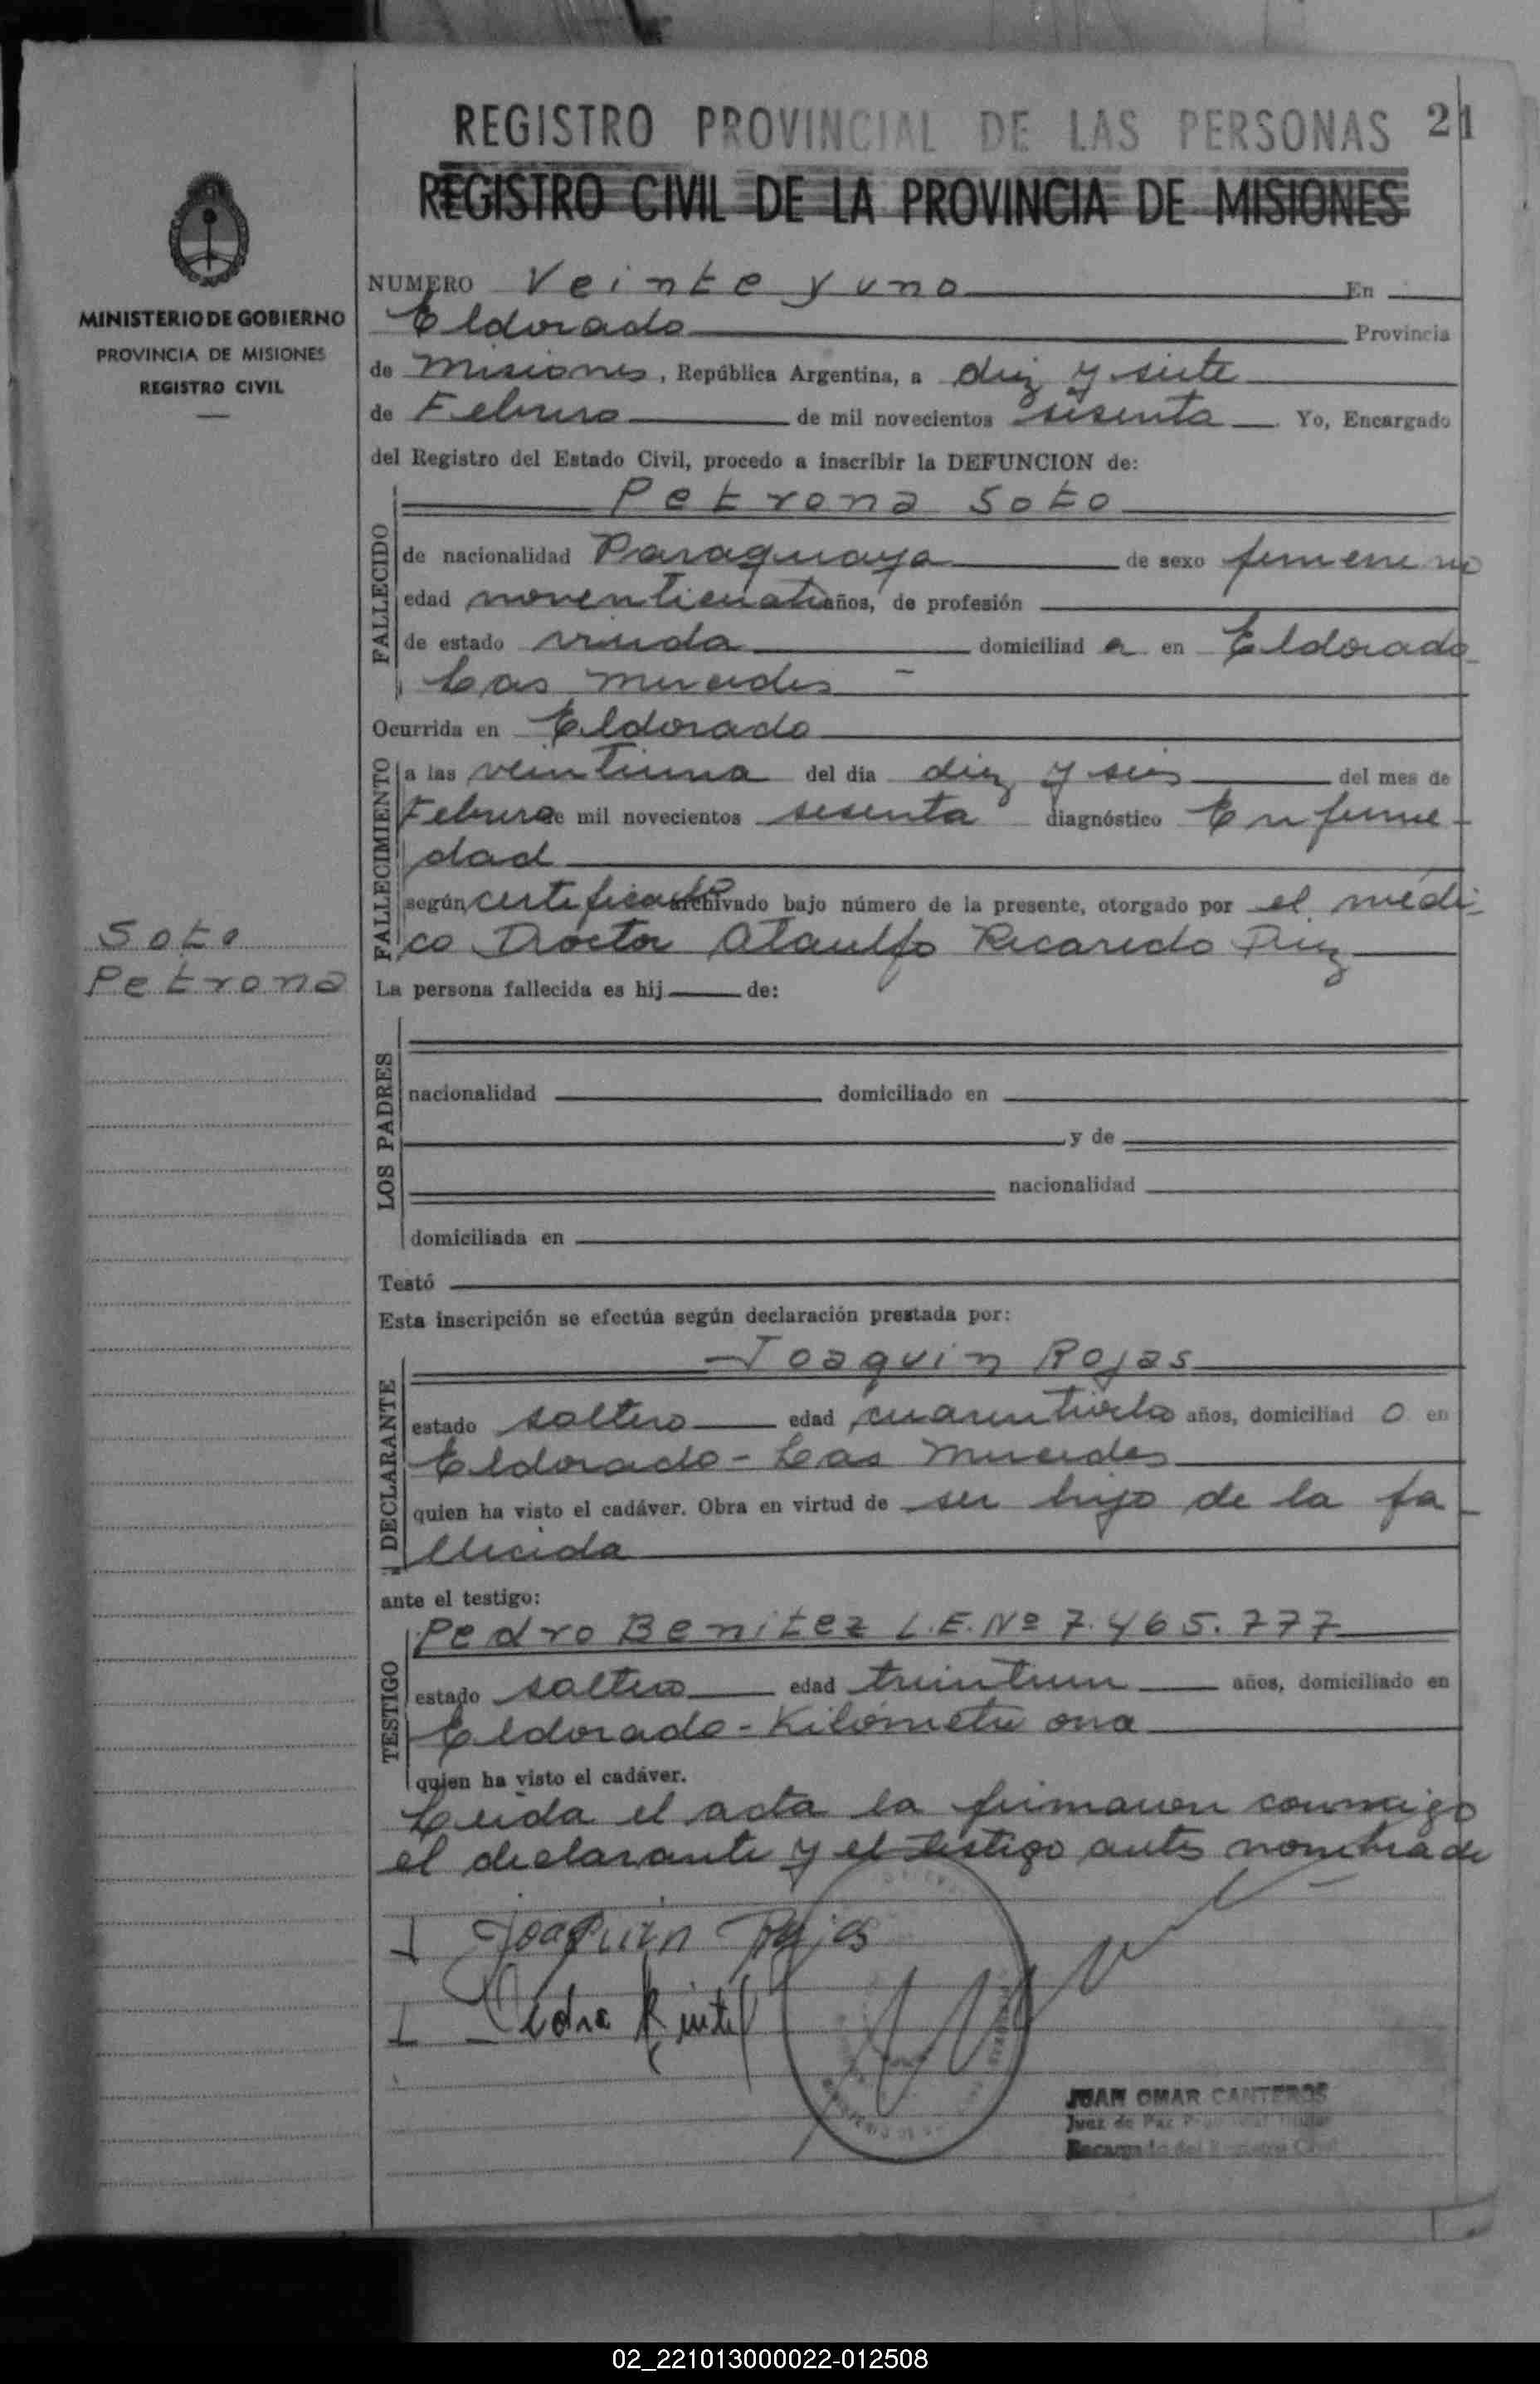 REGISTRO PROVINCIAL DE LAS PERSONAS 21
REGISTRO CIVIL DE LA PROVINCIA DE MISIONES
MINISTERIO DE GOBIERNO
PROVINCIA DE MISIONES
REGISTRO CIVIL
NUMERO Veinte y uno En
Eldorado Provincia
de Misiones, República Argentina, a diez y siete
de Febrero de mil novecientos sesenta Yo, Encargado
del Registro del Estado Civil, procedo a inscribir la DEFUNCION de:
Petrona Soto
FALLECIDO
de nacionalidad Paraguaya de sexo femenino
edad noventicuatro años, de profesión
de estado viuda domiciliad a en Eldorado
Las Mercedes
Ocurrida en Eldorado
FALLECIMIENTO
a las veintiuna del dia diez y seis del mes de
Febrero de mil novecientos sesenta diagnóstico Enferme-
dad
según certificado archivado bajo número de la presente, otorgado por el médi-
co Doctor Ataulfo Ricaredo
Soto
Petrona
La persona fallecida es hij de:
LOS PADRES
nacionalidad domiciliado en
y de
nacionalidad
domiciliada en
Testó
Esta inscripción se efectúa según declaración prestada por:
Joaquin Rojas
DECLARANTE
estado soltero edad años, domiciliad o en
Eldorado - Las Mercedes
quien ha visto el cadáver. Obra en virtud de ser hijo de la fa-
llecida
ante el testigo:
Pedro Benitez L.E. Nº 7.465.777
TESTIGO
estado soltero edad treintiun años, domiciliado en
Eldorado - Kilómetro once
quien ha visto el cadáver.
Leida el acta la firmaron conmigo
el declarante y el testigo antes nombrado
Joaquin Rojas
JUAN OMAR CANTEROS
Juez de Paz
Encargado del Registro Civil
02_221013000022-012508